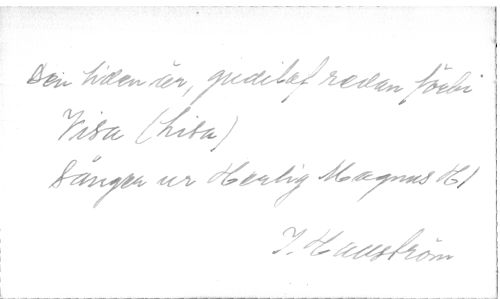 Den tiden är, gudilof redan förbi
Visa (Lisa)
Sånger ur Hertig Magnus H/
I. Hallström